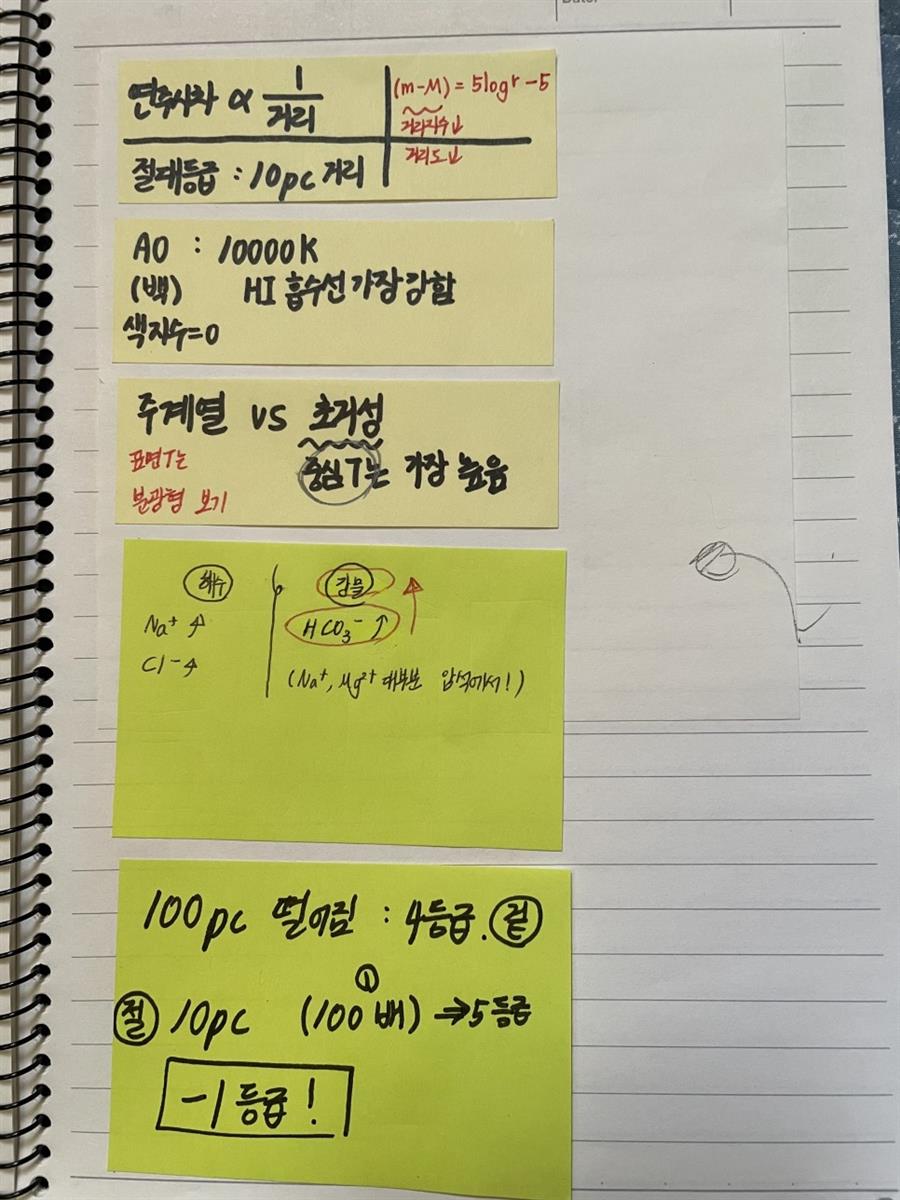 Date.
연주시차 ∝ 1/거리
(m-M) = 5logr-5
거리지수↓
거리도↓
절대등급 : 10pc 거리
A0 : 10000K
(백) HI 흡수선 가장 강함
색지수=0
주계열 vs 초거성
표면T는
분광형 보기
중심T는 가장 높음
해수
Na⁺ ↑
Cl⁻ ↑
강물
HCO₃⁻ ↑
(Na⁺, Mg²⁺ 대부분 암석에서!)
100pc 떨어짐 : 4등급. 겉
①
절 10pc (100배) → 5등급
-1등급!